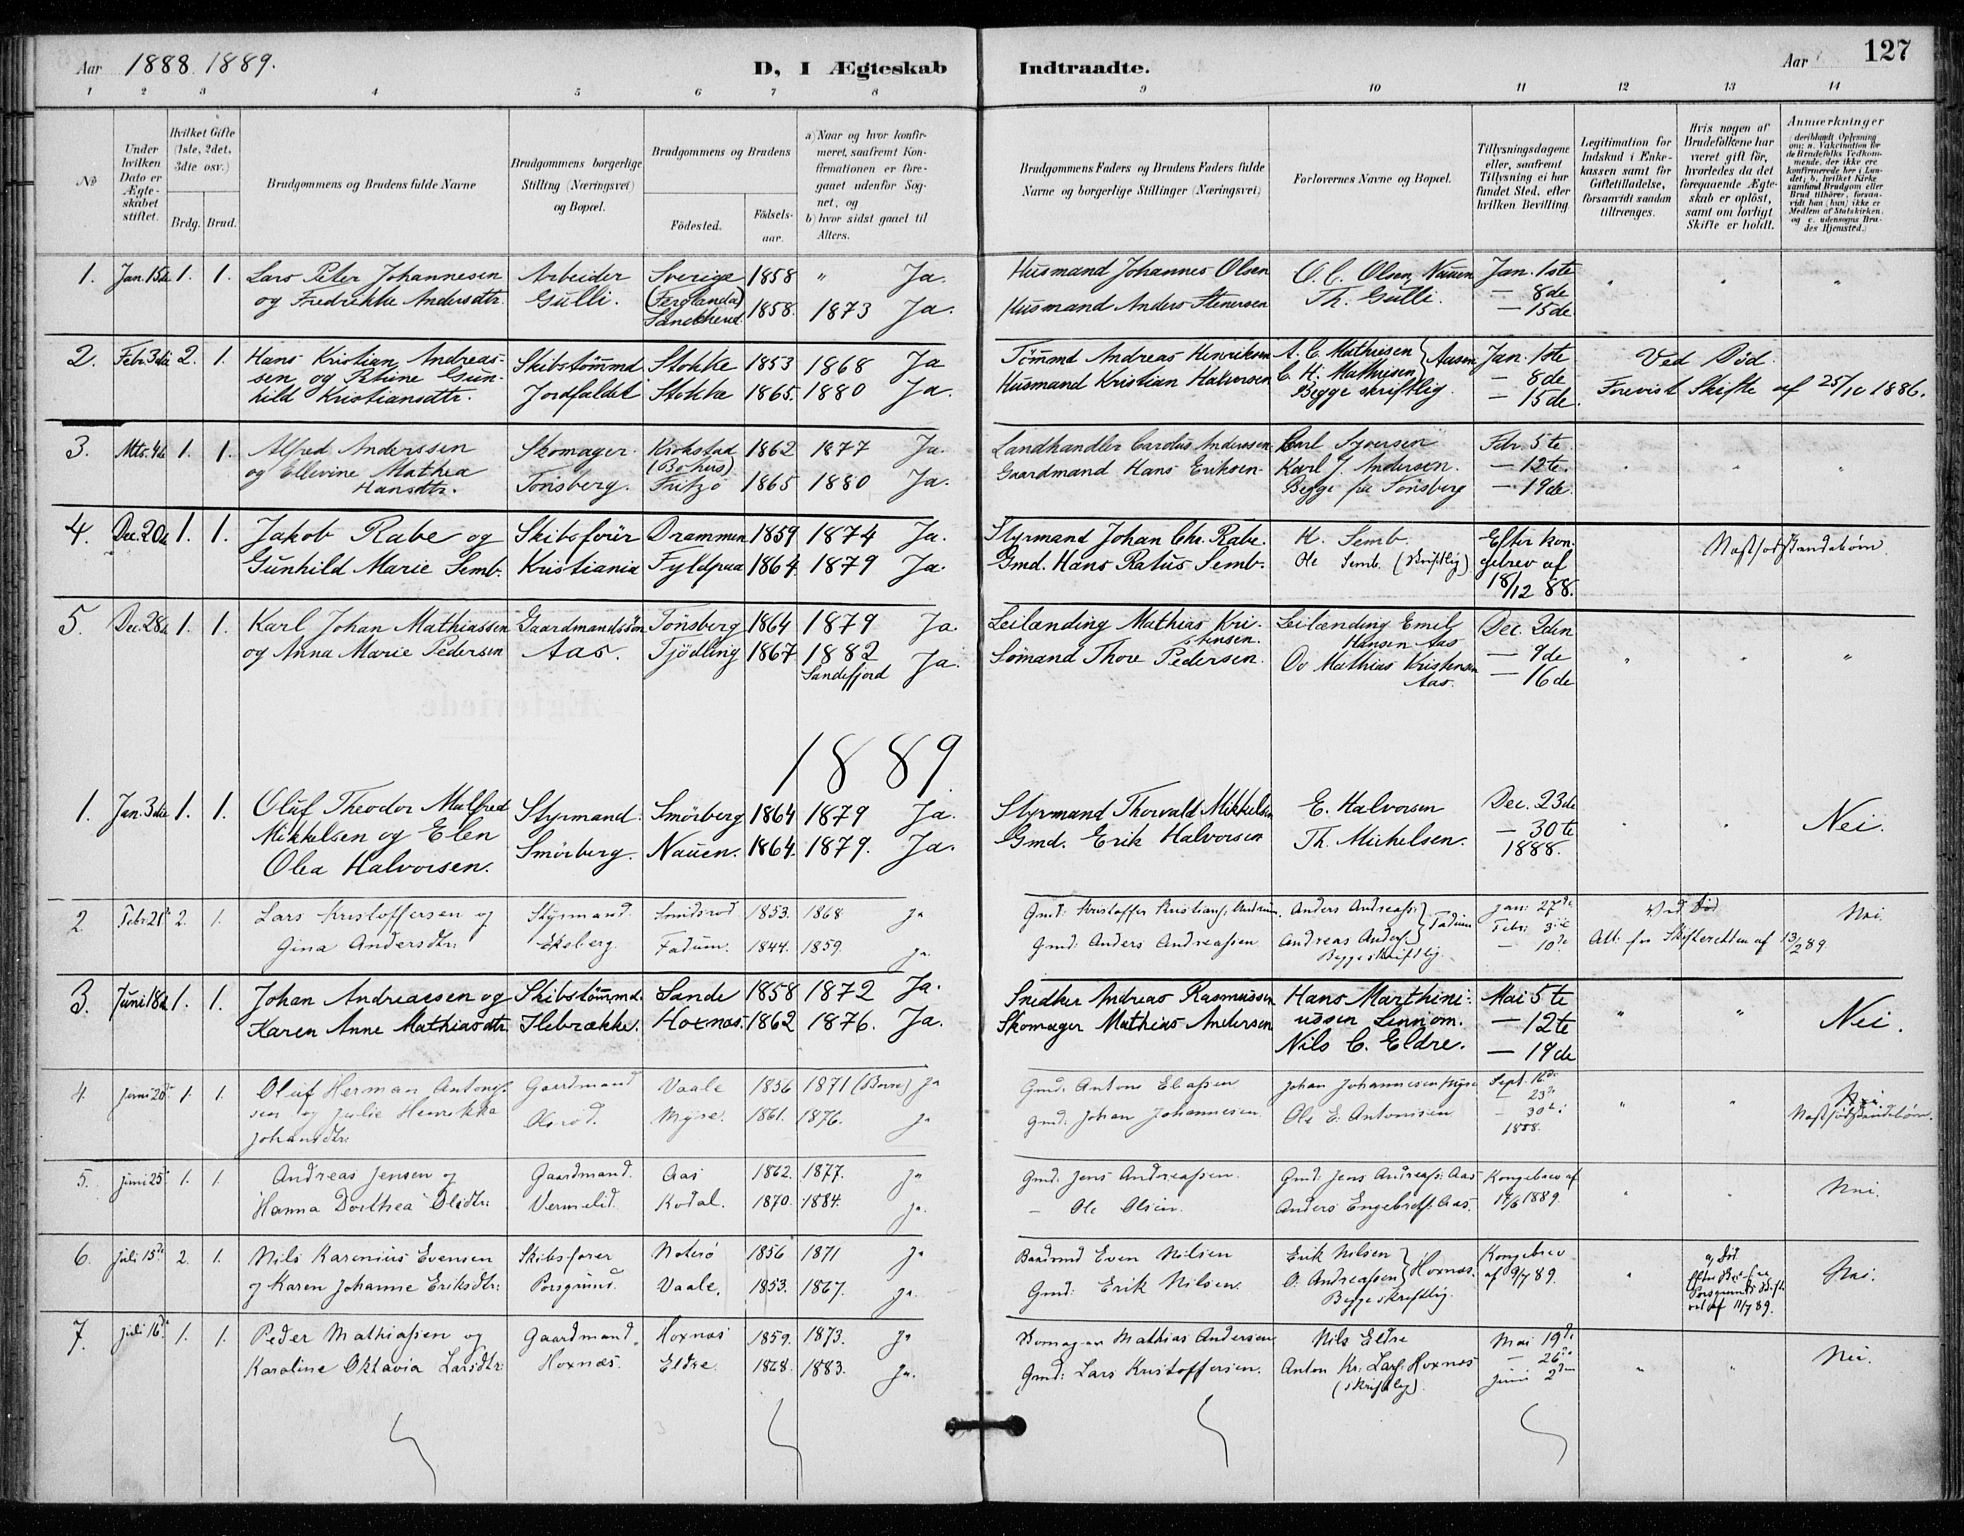 Aar 1888. 1889.
D, I Ægteskab Indtraadte.
Aar 127
1 2 3 4 5 6 7 8 9 10 11 12 13 14
No
Under hvilken Dato er Ægteskabet stiftet.
Hvilket Gifte (1ste, 2det, 3die osv.)
Brdg. Brud.
Brudgommens og Brudens fulde Navne
Brudgommens borgerlige Stilling (Næringsvei) og Bopæl.
Brudgommens og Brudens
Födested.
Födsels-aar.
a) Naar og hvor konfirmeret, saafremt Konfirmationen er foregaaet udenfor Sognet, og
b) hvor sidst gaaet til Alters.
Brudgommens Faders og Brudens Faders fulde Navne og borgerlige Stillinger (Næringsvei)
Forlovernes Navne og Bopæl.
Tillysningsdagene eller, saafremt Tillysning ei har fundet Sted, efter hvilken Bevilling.
Legitimation for Indskud i Enkekassen samt for Giftetilladelse, forsaavidt saadan tiltrænges.
Hvis nogen af Brudefolkene har været gift för, hvorledes da det foregaaende Ægteskab er oplöst, samt om lovligt Skifte er holdt.
Anmærkninger (deriblandt Oplysning om: a. Vakcination for de Brudefolks Vedkommende, der ikke ere konfirmerede her i Landet; b. hvilket Kirkesamfund Brudgom eller Brud tilhörer, forsaavidt han (hun) ikke er Medlem af Statskirken, og c. udensogns Brudes Hjemsted.)
1. Jan. 15de 1. 1. Lars Peter Johannesen Arbeider Sverige 1858 " Ja. Husmand Johannes Olsen O. C. Olsen, Nauen Jan. 1ste " " "
og Fredrikke Andersdtr. Gulli. (Ferglanda) Sandeherred 1858. 1873 Ja. Husmand Anders Stenersen Th. Gulli. — 8de
— 15de
2. Febr. 3die 2. 1. Hans Kristian Andreas- Skibstömmd Stokke 1853 1868 Ja Tömmd Andreas Henriksen A. C. Mathiesen } Aasen Jan. 1ste Ved Död.
sen og Petrine Gun- Jordfaldet Stokke 1865. 1880 Ja. Husmand Kristian Halvorsen C. H. Mathisen — 8de Forevist Skifte af 25/10 1886.
hild Kristiansdtr. Begge skriftlig. — 15de.
3. Mts. 4de 1. 1. Alfred Anderssen Skomager. Krokstad (Bohus) 1862 1877 Ja. Landhandler Carolus Anderssen Carl Syversen Febr. 5te " " "
og Ellevine Mathea Tönsberg. Fritzö 1865 1880 Ja. Gaardmand Hans Eriksen Karl J. Andersen. — 12te.
Hansdtr. Begge fra Tönsberg — 19de.
4. Dec. 20de 1. 1. Jakob Rabe og Skibsförer Drammen 1859 1874 Ja. Styrmand Johan Chr. Rabe. H. Semb. Efter kon- Næstsödskendebörn
Gunhild Marie Semb. Kristiania Fyldpaa 1864. 1879 Ja. Gmd. Hans Ratus Semb. Ole Semb. (Skriftlig) gebrev af
18/12 88.
5. Dec. 28de 1. 1. Karl Johan Mathiassen Gaardmandssön Tönsberg 1864 1879 Ja. Leilænding Mathias Kri- Leilænding Emil Dec. 2den
og Anna Marie Pedersen Aas. Tjödling 1867 1882 Sandefjord Ja. stensen. Hansen Aas — 9de " " "
Sömand Thore Pedersen. Ov Mathias Kristensen Aas. — 16de
1889.
1. Jan. 3die 1. 1. Oluf Theodor Malfred Styrmand. Smörberg 1864 1879 Ja. Styrmand Thorvald Mikkelsen E. Halvorsen Dec. 23de " " Nei.
Mikkelsen og Elen Smörberg. Nauen. 1864. 1879. Ja. Gmd. Erik Halvorsen Th. Michelsen. — 30te
Olea Halvorsen. 1888.
2. Febr 21de 2. 1. Lars Kristoffersen og Styrmand. Smidsrod 1853. 1868 ja Gmd: Kristoffer Kristians: Anders Andreass: } Fadum Jan: 27de Ved Död Nei.
Gina Andersdtr: Eksberg. Fadum. 1844. 1859. ja. Gmd: Anders Andreassen Andreas Anders: Febr: 3die Att. fra Skifteretten af 13/2 89.
Begge skriftlig. — 10de
3. Juni 18de 1. 1. Johan Andreassen og Skibstömmd. Sande 1858 1872 Ja. Snedker Andreas Rasmussen Hans Marthini- Mai 5te " " Nei.
Karen Anne Mathiasdtr. Ilebrække. Hoxnæs. 1862 1876. Ja. Skomager Mathias Andersen ussen Linnom. — 12te
Nils C. Eldre. — 19de
4. Juni 20de 1. 1. Oluf Herman Antons- Gaardmand Vaale 1856 1871 (Borre) ja Gmd: Antons Eliassen Johan Johannesen Myre Sept. 16de Nei
sen og Julie Henrikka Myre. 1861. 1876. ja Gmd: Johan Johannesen. Ole E: Antonisen — 23de " " Næstsödskendebörn.
Johansdtr: — 30te:
1888.
5. Juni 25de 1. 1. Andreas Jensen og Gaardmand. Aas 1862. 1877. ja Gmd. Jens Andreassen. Gmd: Jens Andreass: Aas Kongebrev af " " Nei.
Hanna Dorthea Olsdtr: Vermelid. Kodal. 1870. 1884. ja. — Ole Olsen. Anders Engebrets: Aas. 19/6 1889.
6. Juli 15de 2. 1. Nils Karenius Evensen Skibsförer Nöterö 1856 1871 ja Baadsmd Even Nilsen Erik Nilsen } Hoxnæs. Kongebrev " ved Död. Nei.
og Karen Johanne Eriksdtr: Porsgrund. Vaale. 1853. 1867. ja. Gmd: Erik Nilsen. O. Andreassen af 9/7 89. efter Bev. fra Porsgrunds Skifteret af 11/7 89.
Begge skriftlig.
7. Juli 16de 1. 1. Peder Mathiassen og Gaardmand. Hoxnæs 1859. 1873. ja Skomager Mathias Andersen Nils Eldre Mai 19de " " Nei.
Karoline Oktavia Larsdtr: Hoxnæs. Eldre. 1868. 1883. ja. Gmd: Lars Kristoffersen. Anton Kr. Lars: Hoxnæs — 26de
(skriftlig). Juni 2den